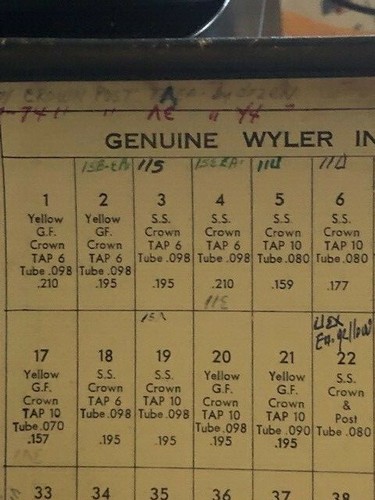 CROWN POST
GENUINE WYLER IN
115
1
Yellow
G.F.
Crown
TAP 6
Tube .098
.210
2
Yellow
GF.
Crown
TAP 6
Tube .098
.195
3
S.S.
Crown
TAP 6
Tube .098
.195
4
S.S.
Crown
TAP 6
Tube .098
.210
5
S.S.
Crown
TAP 10
Tube .080
.159
6
S.S.
Crown
TAP 10
Tube .080
.177
17
Yellow
G.F.
Crown
TAP 10
Tube .070
.157
18
S.S.
Crown
TAP 6
Tube .098
.195
19
S.S.
Crown
TAP 10
Tube .098
.195
20
Yellow
G.F.
Crown
TAP 10
Tube .098
.195
21
Yellow
G.F.
Crown
TAP 10
Tube .090
.195
22
S.S.
Crown
&
Post
Tube .080
33
34
35
36
37
38